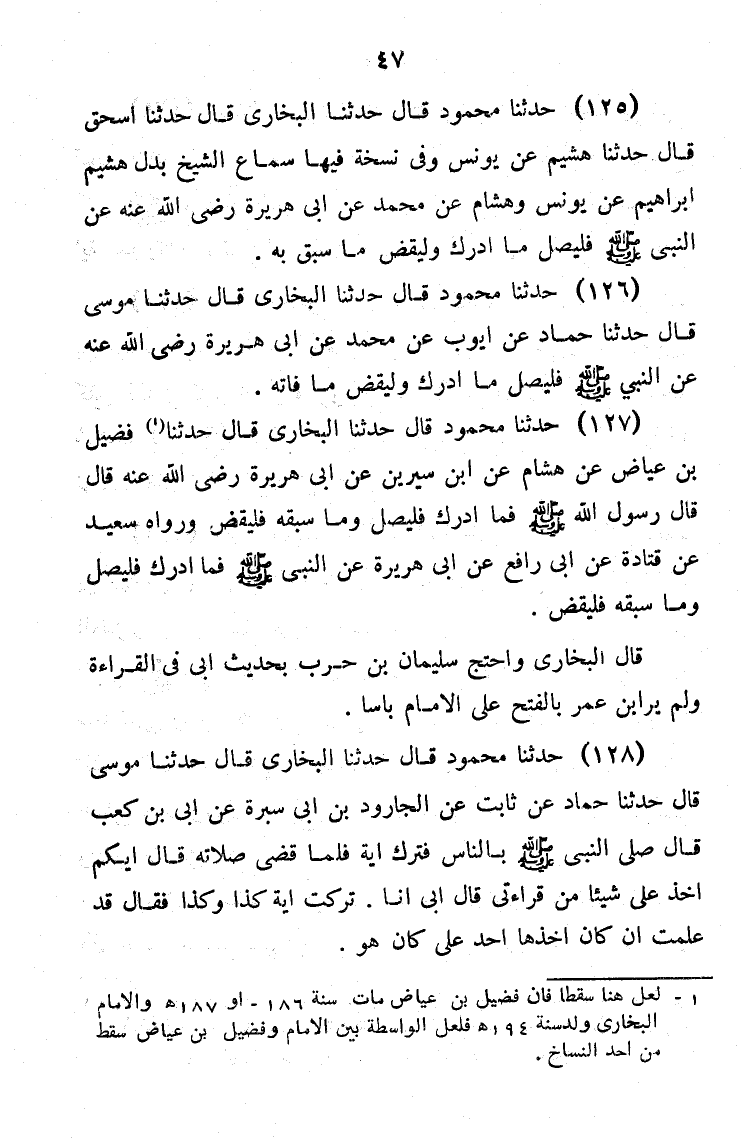 ٤٧
(١٢٥) حدثنا محمود قال حدثنا البخارى قال حدثنا اسحق
قال حدثنا هشيم عن يونس وفى نسخة فيها سماع الشيخ بدل هشيم
ابراهيم عن يونس وهشام عن محمد عن ابى هريرة رضى الله عنه عن
النبى ﷺ فليصل ما ادرك وليقض ما سبق به .
(١٢٦) حدثنا محمود قال حدثنا البخارى قال حدثنا موسى
قال حدثنا حماد عن ايوب عن محمد عن ابى هريرة رضى الله عنه
عن النبي ﷺ فليصل ما ادرك وليقض ما فاته .
(١٢٧) حدثنا محمود قال حدثنا البخارى قال حدثنا(١) فضيل
بن عياض عن هشام عن ابن سيرين عن ابى هريرة رضى الله عنه قال
قال رسول الله ﷺ فما ادرك فليصل وما سبقه فليقض ورواه سعيد
عن قتادة عن ابى رافع عن ابى هريرة عن النبى ﷺ فما ادرك فليصل
وما سبقه فليقض .
قال البخارى واحتج سليمان بن حرب بحديث ابى فى القراءة
ولم يرابن عمر بالفتح على الامام باسا .
(١٢٨) حدثنا محمود قال حدثنا البخارى قال حدثنا موسى
قال حدثنا حماد عن ثابت عن الجارود بن ابى سبرة عن ابى بن كعب
قال صلى النبى ﷺ بالناس فترك اية فلما قضى صلاته قال ايكم
اخذ على شيئا من قراءتى قال ابى انا . تركت اية كذا وكذا فقال قد
علمت ان كان اخذها احد على كان هو .
١ - لعل هنا سقطا فان فضيل بن عياض مات سنة ١٨٦ - او ١٨٧ھ والامام
البخارى ولدسنة ١٩٤ھ فلعل الواسطة بين الامام وفضيل بن عياض سقط
من احد النساخ .